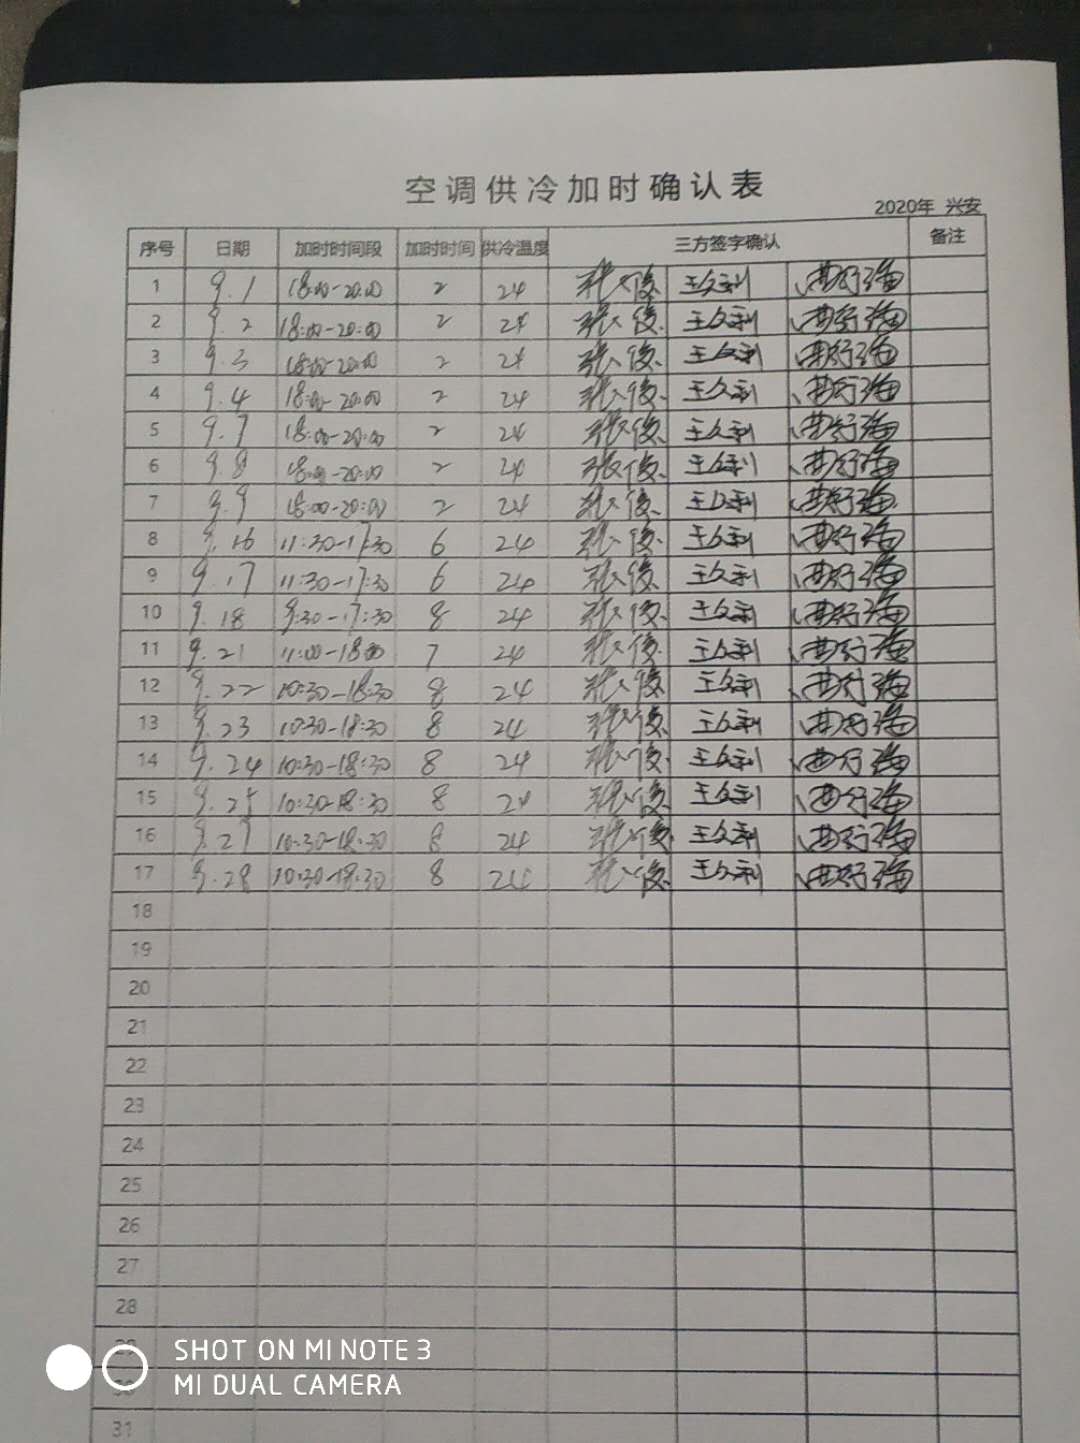 空调供冷加时确认表
2020年 兴安
序号 日期 加时时间段 加时时间 供冷温度 三方签字确认 备注
1 9.1 18:00-20:00 2 24 王久利
2 9.2 18:00-20:00 2 24 王久利
3 9.3 18:00-20:00 2 24 王久利
4 9.4 18:00-20:00 2 24 王久利
5 9.7 18:00-20:00 2 24 王久利
6 9.8 18:00-20:00 2 24 王久利
7 9.9 18:00-20:00 2 24 王久利
8 9.16 11:30-17:30 6 24 王久利
9 9.17 11:30-17:30 6 24 王久利
10 9.18 9:30-17:30 8 24 王久利
11 9.21 11:00-18:00 7 24 王久利
12 9.22 10:30-18:30 8 24 王久利
13 9.23 10:30-18:30 8 24 王久利
14 9.24 10:30-18:30 8 24 王久利
15 9.25 10:30-18:30 8 24 王久利
16 9.27 10:30-18:30 8 24 王久利
17 9.28 10:30-18:30 8 24 王久利
18
19
20
21
22
23
24
25
26
27
28
29
SHOT ON MI NOTE 3
30
MI DUAL CAMERA
31